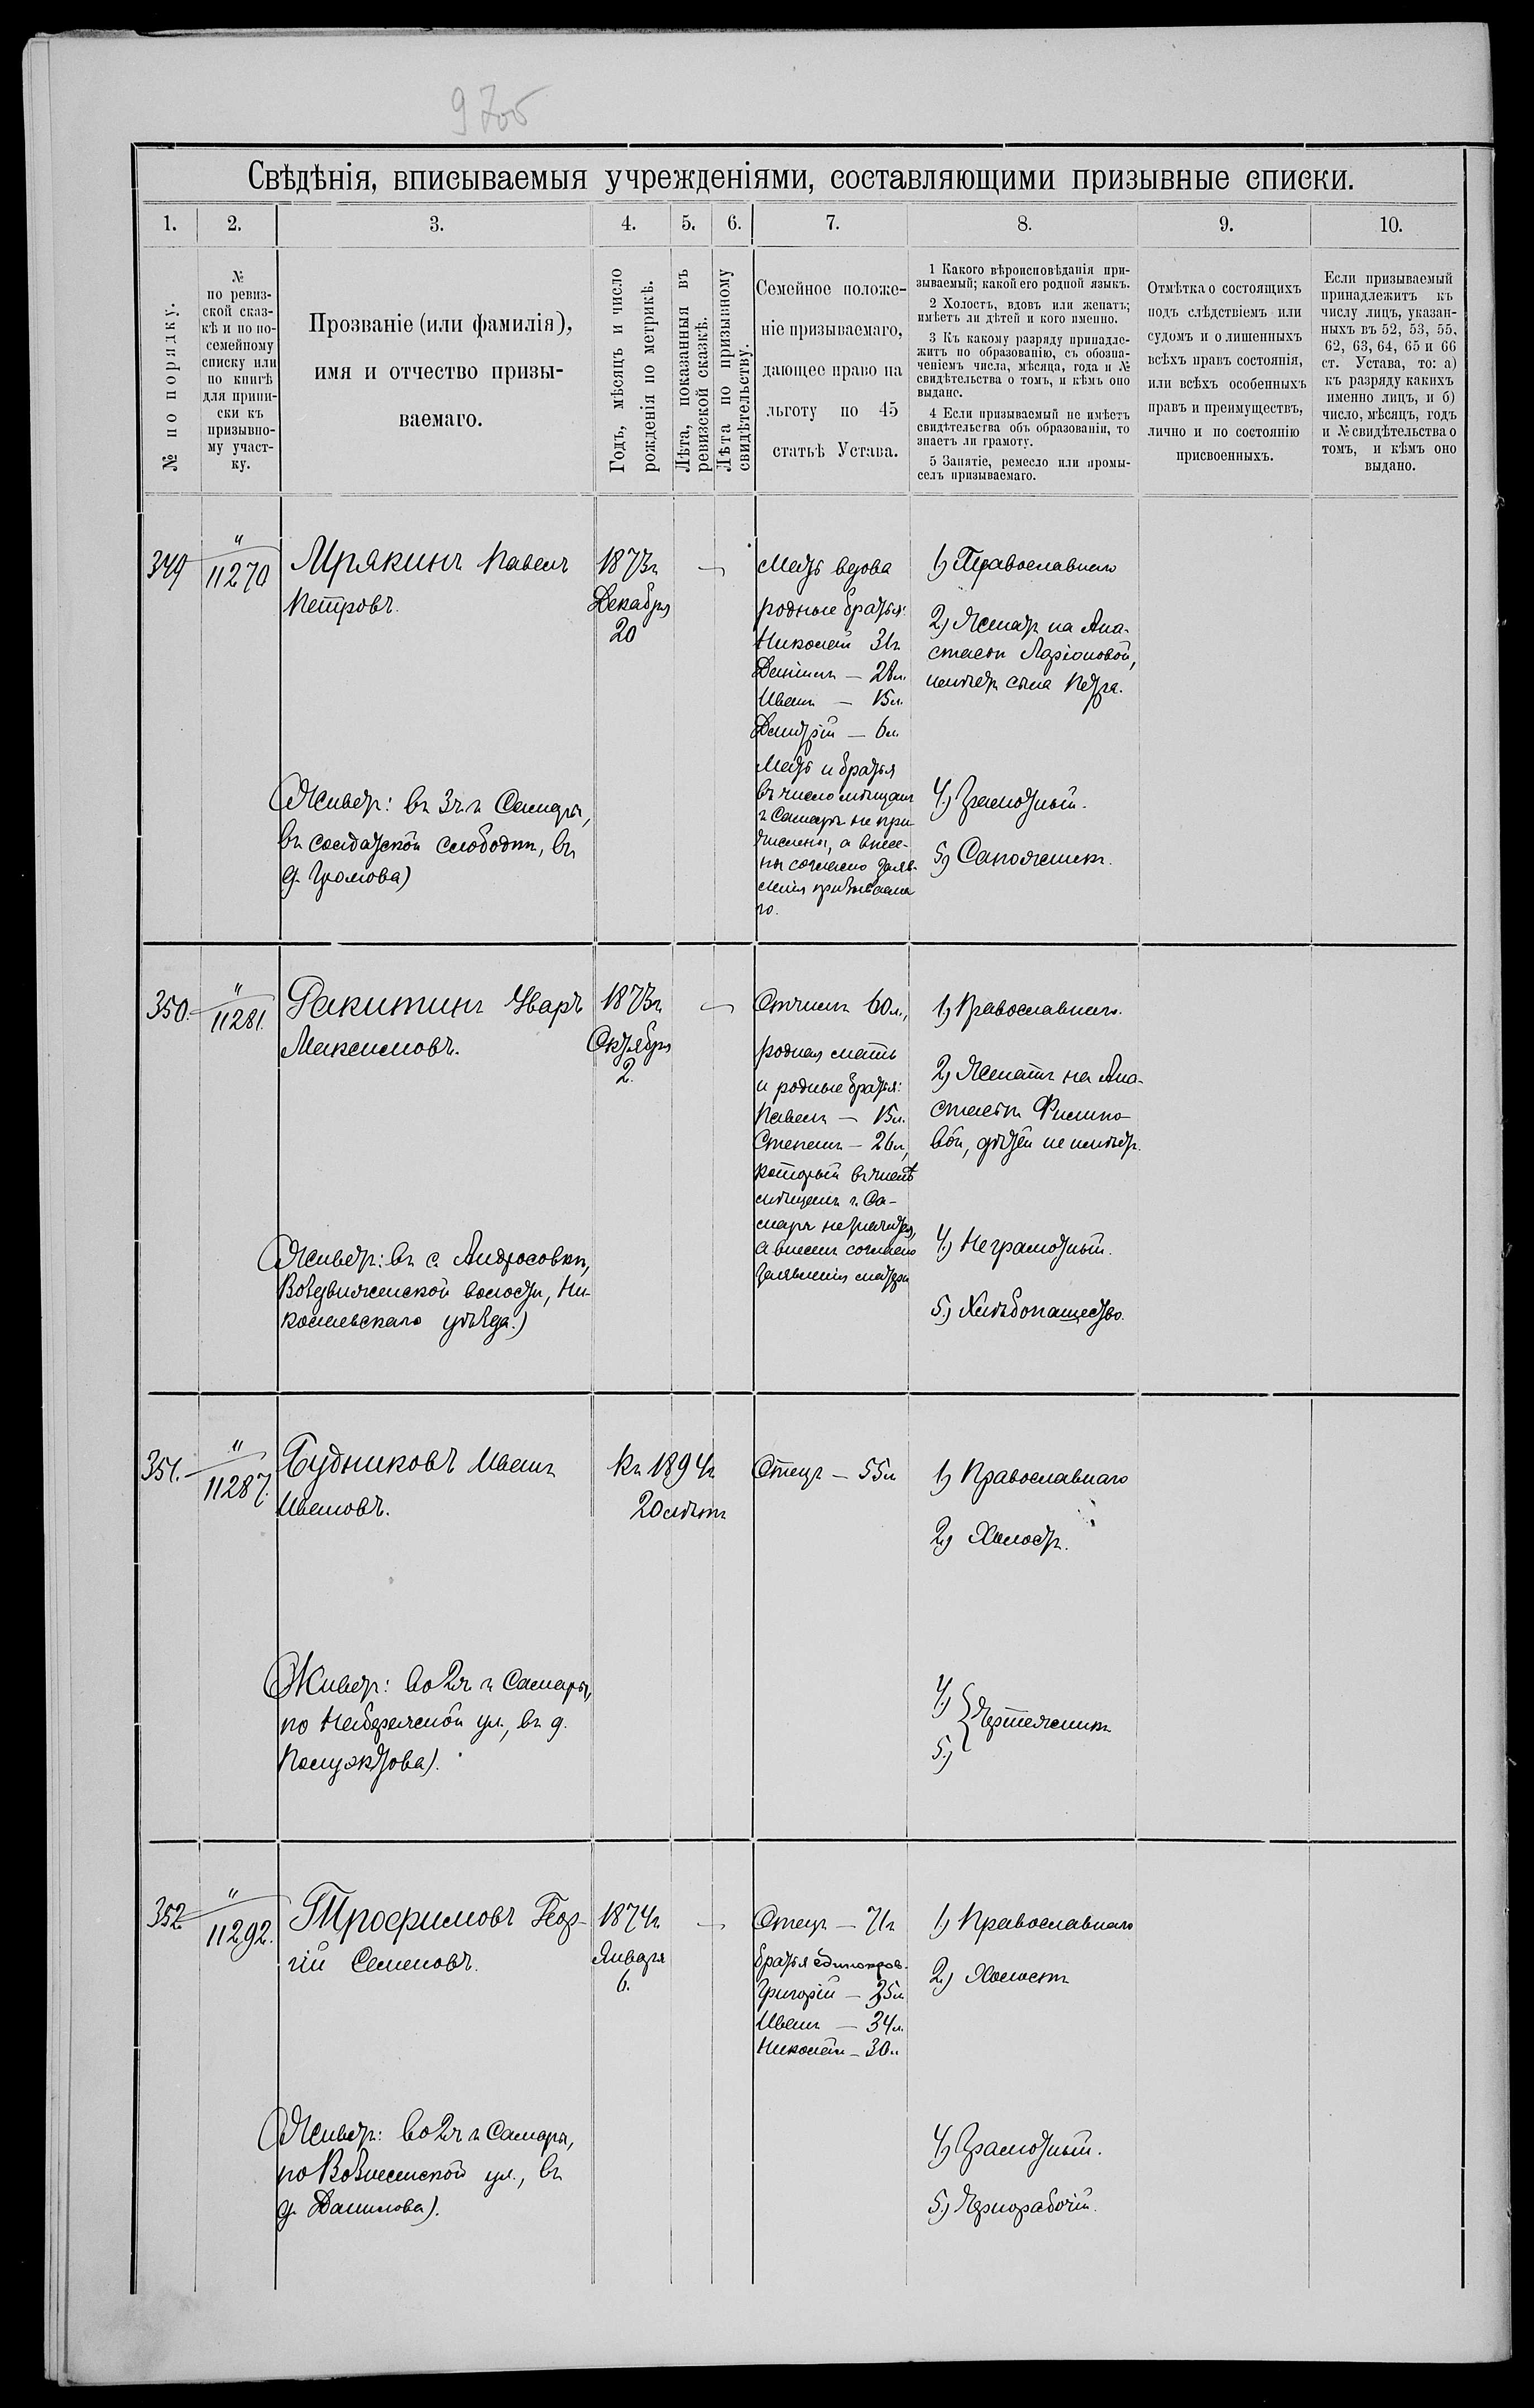 9705
Свѣдѣнія, вписываемыя учрежденіями, составляющими призывные списки.
1. 2. 3. 4. 5. 6. 7. 8. 9. 10.
№ по порядку.
№
по ревиз-
ской сказ-
кѣ и по по-
семейному
списку или
по книгѣ
для припи-
ски къ
призывно-
му участ-
ку.
Прозваніе (или фамилія),
имя и отчество призы-
ваемаго.
Годъ, мѣсяцъ и число
рожденія по метрикѣ.
Лѣта, показанныя въ
ревизской сказкѣ.
Лѣта по призывному
свидѣтельству.
Семейное положе-
ніе призываемаго,
дающее право на
льготу по 45
статьѣ Устава.
1 Какого вѣроисповѣданія при-
зываемый; какой его родной языкъ.
2 Холостъ, вдовъ или женатъ;
имѣетъ ли дѣтей и кого именно.
3 Къ какому разряду принадле-
житъ по образованію, съ обозна-
ченіемъ числа, мѣсяца, года и №
свидѣтельства о томъ, и кѣмъ оно
выдано.
4 Если призываемый не имѣетъ
свидѣтельства объ образованіи, то
знаетъ ли грамоту.
5 Занятіе, ремесло или промы-
селъ призываемаго.
Отмѣтка о состоящихъ
подъ слѣдствіемъ или
судомъ и о лишенныхъ
всѣхъ правъ состоянія,
или всѣхъ особенныхъ
правъ и преимуществъ,
лично и по состоянію
присвоенныхъ.
Если призываемый
принадлежитъ къ
числу лицъ, указан-
ныхъ въ 52, 53, 55,
62, 63, 64, 65 и 66
ст. Устава, то: а)
къ разряду какихъ
именно лицъ, и б)
число, мѣсяцъ, годъ
и № свидѣтельства о
томъ, и кѣмъ оно
выдано.
349
"
11270
Мрякинъ Павелъ
Петровъ.
(Живетъ: въ 3ч. г. Самары,
въ солдатской слободкѣ, въ
д. Громова)
1873г.
Декабря
20
—
Мать вдова
родные братья:
Николай 31г.
Даніилъ — 28л.
Иванъ — 15л.
Дмитрій — 6л.
Мать и братья
въ число мѣщанъ
г. Самары не при-
числены, а внесе-
ны согласно заяв-
ленія призываема
го.
1) Православнаго
2) Женатъ на Ана-
стасіи Ларіоновой,
имѣетъ сына Петра.
4) Грамотный.
5) Сапожникъ.
350.
"
11281.
Ракитинъ Уваръ
Максимовъ.
(Живетъ: въ с. Андросовкѣ,
Воздвиженской волости, Ни-
колаевскаго уѣзда.)
1873г.
Октября
2.
—
Отчимъ 60л.,
родная мать
и родные братья:
Павелъ — 15л.
Степанъ — 26л.,
который въ числѣ
мѣщанъ г. Са-
мары не значится,
а внесенъ согласно
заявленія матери
1) Православнаго.
2) Женатъ на Ана-
стасіи Филиппо-
вой, дѣтей не имѣетъ.
4.) Неграмотный.
5.) Хлѣбопашество.
351.
"
11287.
Будниковъ Иванъ
Ивановъ.
(Живетъ: во 2ч. г. Самары,
по Набережной ул., въ д.
Полуэктова).
Къ 1894г.
20 лѣтъ
Отецъ — 55л.
1) Православнаго
2) Холостъ.
4.)
5.)
Чертежникъ
352
"
11292.
Трофимовъ Геор-
гій Семеновъ.
(Живетъ: во 2ч. г. Самары,
по Вознесенской ул., въ
д. Данилова).
1874г.
Января
6.
—
Отецъ — 71г.
братья единокров.
Григорій — 35л.
Иванъ — 34л.
Николай — 30л.
1) Православнаго
2) Холостъ
4) Грамотный.
5.) Чернорабочій.